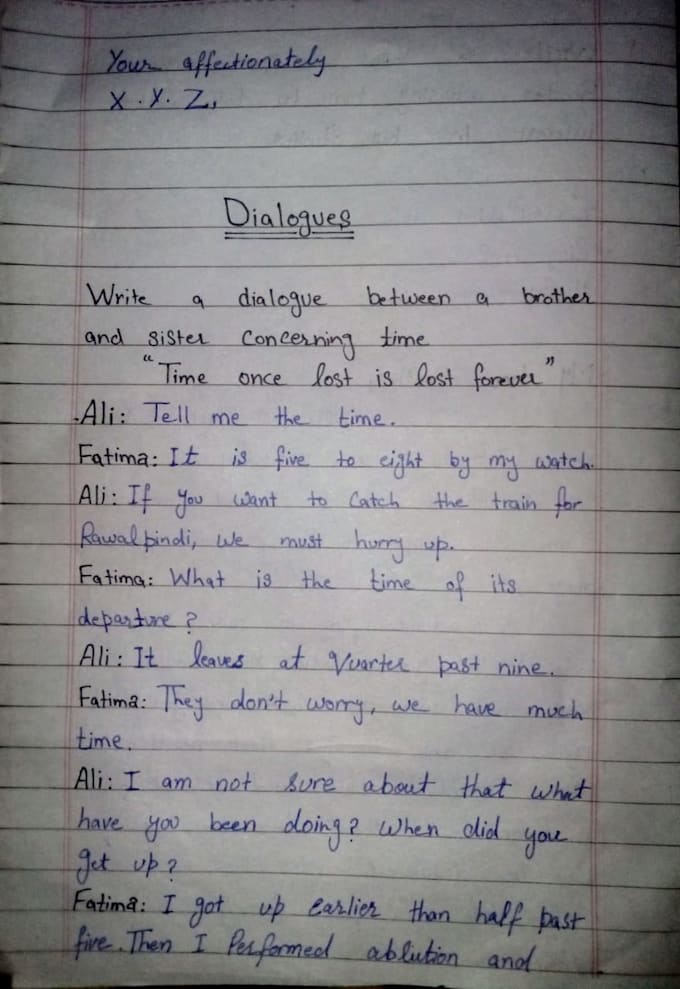 Your affectionately
X . Y . Z,
Dialogues
Write a dialogue between a brother
and sister concerning time
"Time once lost is lost forever"
Ali: Tell me the time.
Fatima: It is five to eight by my watch.
Ali: If you want to catch the train for
Rawalpindi, we must hurry up.
Fatima: What is the time of its
departure?
Ali: It leaves at Quarter past nine.
Fatima: They don't worry, we have much
time.
Ali: I am not sure about that what
have you been doing? When did you
get up?
Fatima: I got up earlier than half past
five. Then I Performed ablution and